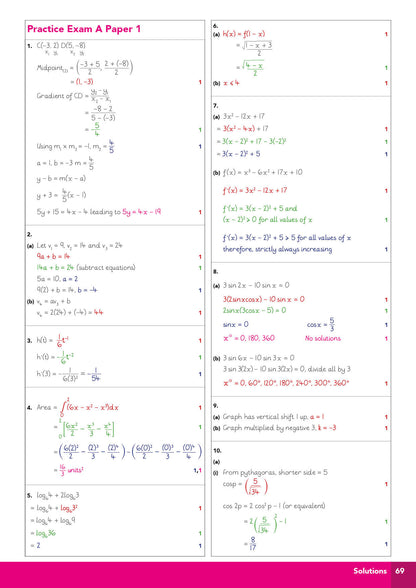 Practice Exam A Paper 1
1. C(-3, 2) D(5, -8)
x₁ y₁ x₂ y₂
Midpoint_CD = ((-3 + 5)/2, (2 + (-8))/2)
= (1, -3) 1
Gradient of CD = (y₂ - y₁)/(x₂ - x₁)
= (-8 - 2)/(5 - (-3))
= -5/4 1
Using m₁ × m₂ = -1, m₂ = 4/5 1
a = 1, b = -3 m = 4/5
y - b = m(x - a)
y + 3 = 4/5(x - 1)
5y + 15 = 4x - 4 leading to 5y = 4x - 19 1
2.
(a) Let v₁ = 9, v₂ = 14 and v₃ = 24
9a + b = 14 1
14a + b = 24 (subtract equations) 1
5a = 10, a = 2
9(2) + b = 14, b = -4 1
(b) v₄ = av₃ + b
v₄ = 2(24) + (-4) = 44 1
3. h(t) = 1/6 t⁻¹ 1
h'(t) = -1/6 t⁻² 1
h'(3) = -1/6(3)² = -1/54 1
4. Area = ∫₀² (6x - x² - x³)dx 1
= [6x²/2 - x³/3 - x⁴/4]₀² 1
= (6(2)²/2 - (2)³/3 - (2)⁴/4) - (6(0)²/2 - (0)³/3 - (0)⁴/4)
= 16/3 units² 1,1
5. log₆4 + 2log₆3
= log₆4 + log₆3² 1
= log₆4 + log₆9
= log₆36 1
= 2 1
6.
(a) h(x) = f(1 - x) 1
= √(1 - x + 3)/2
= √(4 - x)/2 1
(b) x ⩽ 4 1
7.
(a) 3x² - 12x + 17
= 3(x² - 4x) + 17 1
= 3(x - 2)² + 17 - 3(-2)² 1
= 3(x - 2)² + 5 1
(b) f(x) = x³ - 6x² + 17x + 10
f'(x) = 3x² - 12x + 17 1
f'(x) = 3(x - 2)² + 5 and
(x - 2)² ⩾ 0 for all values of x 1
f'(x) = 3(x - 2)² + 5 ⩾ 5 for all values of x
therefore, strictly always increasing 1
8.
(a) 3 sin 2x - 10 sin x = 0
3(2sinxcosx) - 10 sin x = 0 1
2sinx(3cosx - 5) = 0 1
sinx = 0 cosx = 5/3 1
x° = 0, 180, 360 No solutions 1
(b) 3 sin 6x - 10 sin 3x = 0
3 sin 3(2x) - 10 sin 3(x) = 0, divide all by 3
x° = 0, 60°, 120°, 180°, 240°, 300°, 360° 1
9.
(a) Graph has vertical shift 1 up, a = 1 1
(b) Graph multiplied by negative 3, k = -3 1
10.
(a)
(i) From pythagoras, shorter side = 5
cosp = (5/√34) 1
cos 2p = 2 cos² p - 1 (or equivalent)
= 2(5/√34)² - 1 1
= 8/17 1
Solutions 69